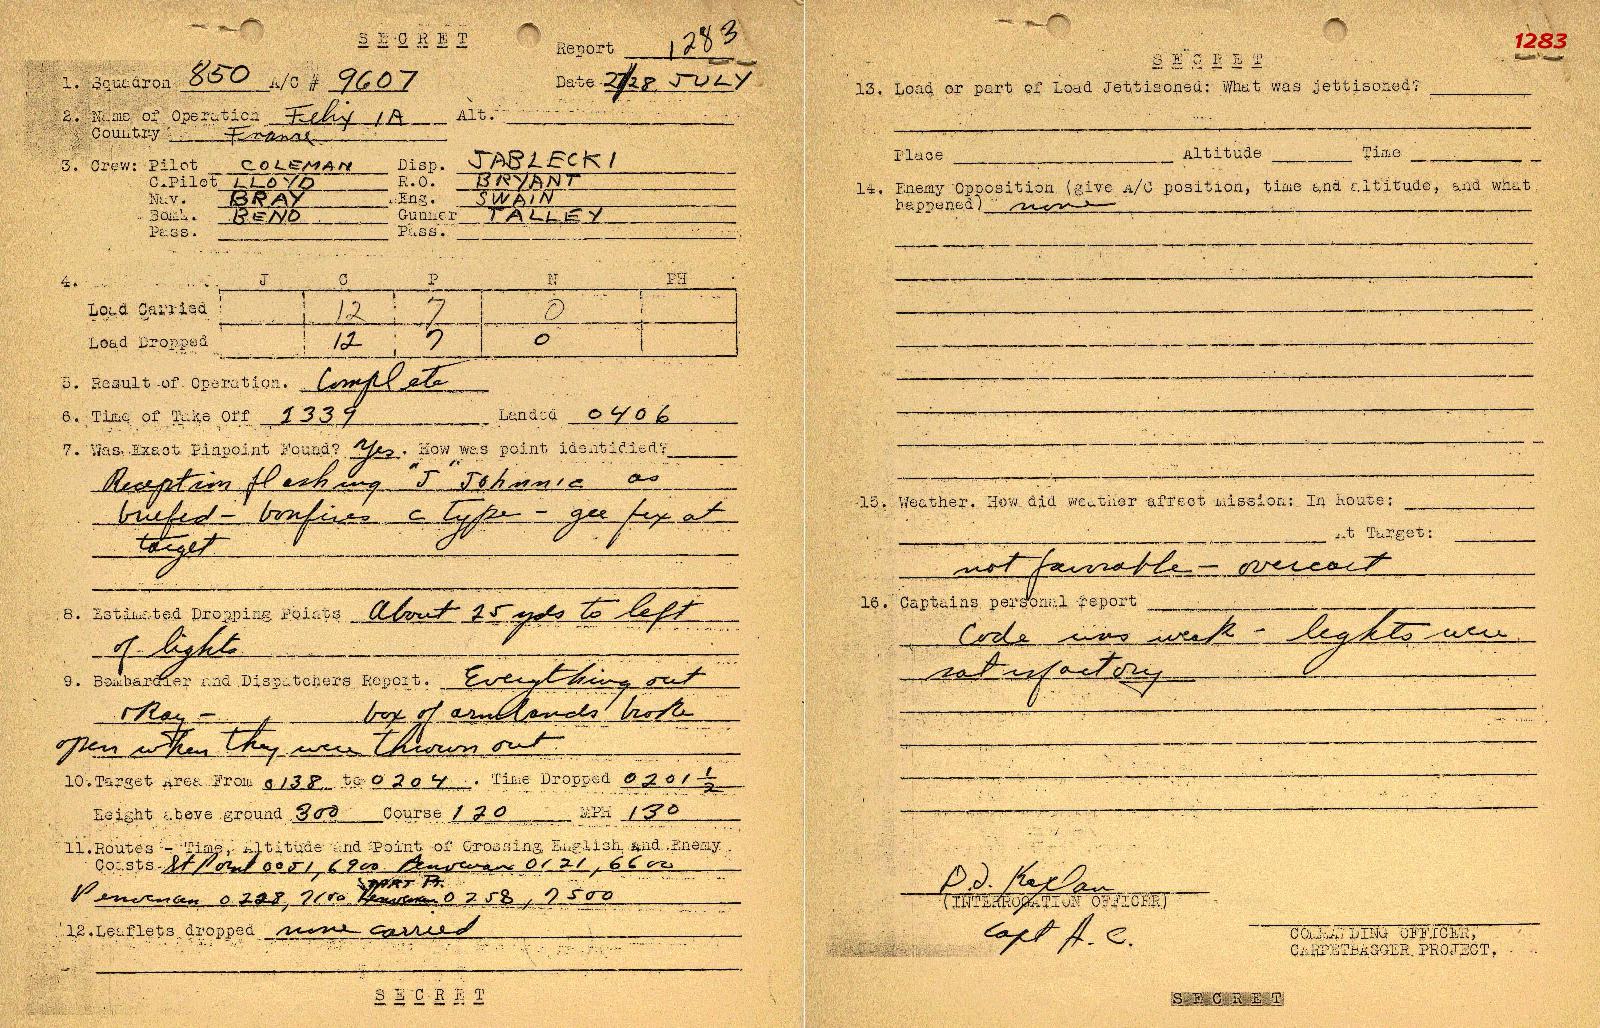 SECRET
Report 1283
1. Squadron 850 A/C # 9607 Date 27/28 JULY
2. Name of Operation Felix 1A Alt.
Country France
3. Crew: Pilot COLEMAN Disp. JABLECKI
C.Pilot LLOYD R.O. BRYANT
Nav. BRAY Eng. SWAIN
Bomb. BEND Gunner TALLEY
Pass. Pass.
4. J C P N PH
Load Carried 12 7 0
Load Dropped 12 7 0
5. Result of Operation. Complete
6. Time of Take Off 2339 Landed 0406
7. Was Exact Pinpoint Found? Yes. How was point identidied?
Reception flashing "J" Johnnie as
briefed - bonfires c type - gee fix at
target
8. Estimated Dropping Points About 25 yds to left
of lights
9. Bombardier and Dispatchers Report. Everything out
okay - box of armbands broke
open when they were thrown out
10. Target Area From 0138 to 0204. Time Dropped 0201 ½
Height above ground 300 Course 120 MPH 130
11. Routes - Time, Altitude and Point of Crossing English and Enemy
Coasts. St Point 0051, 6900 Penvenan 0121, 6600
START Pt.
Penvenan 0228, 7100 0258, 7500
12. Leaflets dropped none carried
SECRET
1283
SECRET
13. Load or part of Load Jettisoned: What was jettisoned?
Place Altitude Time
14. Enemy Opposition (give A/C position, time and altitude, and what
happened) none
15. Weather. How did weather affect mission: In Route:
At Target:
not favorable - overcast
16. Captains personal report
Code was weak - lights were
satisfactory
(INTERROGATION OFFICER)
Capt A.C.
COMMANDING OFFICER,
CARPETBAGGER PROJECT.
SECRET